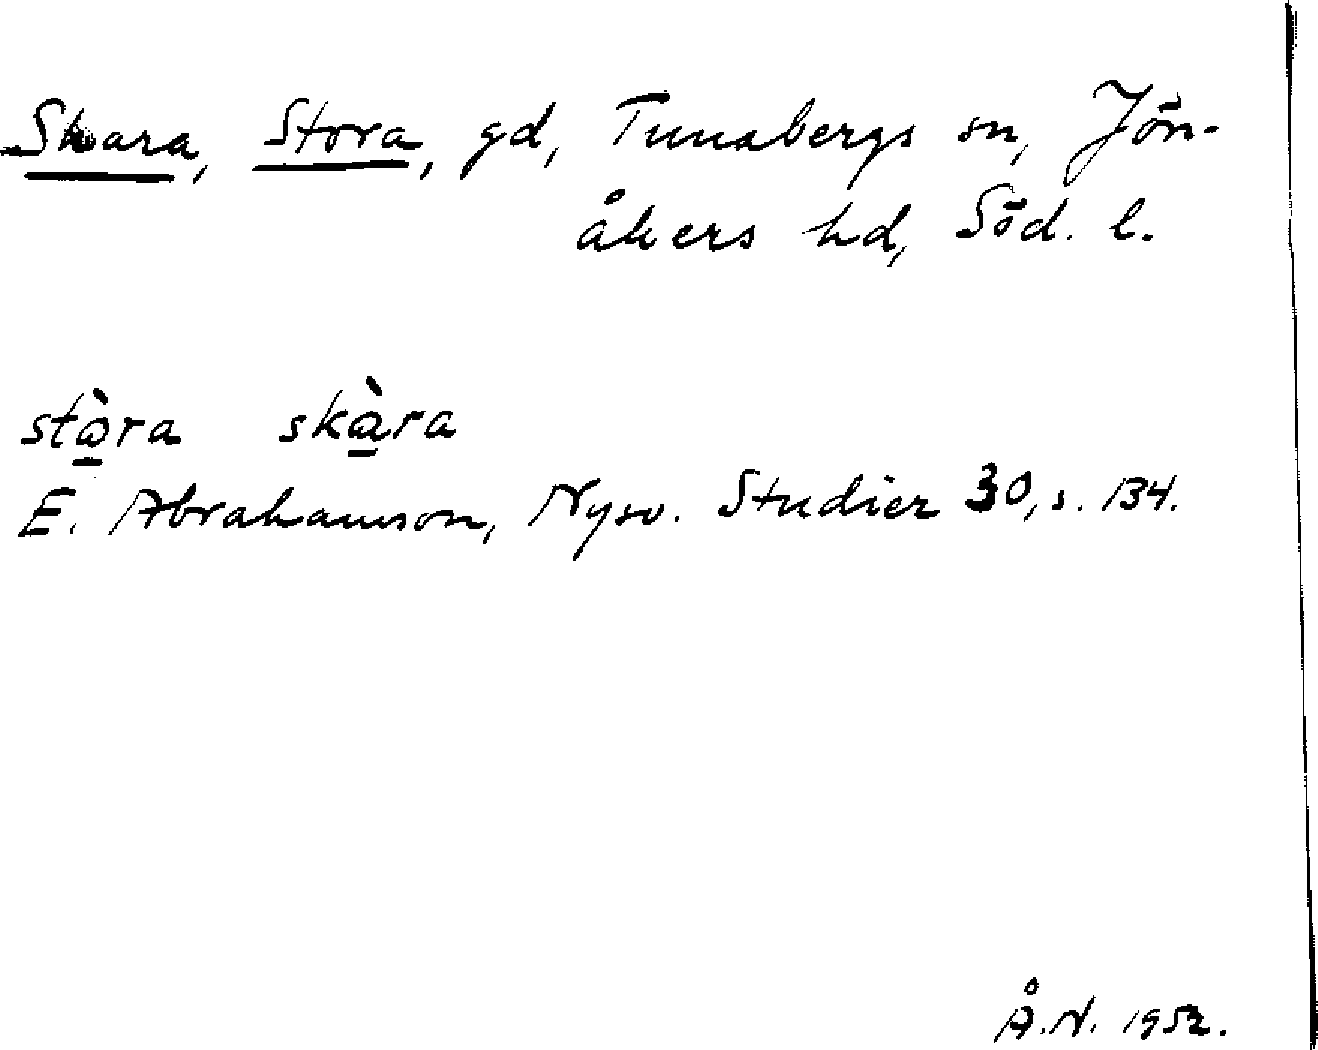 Skara, Stora, gd, Tunabergs sn, Jön-
åkers hd, Söd. l.
stò̱ra skà̱ra
E. Abrahamson, Nysv. Studier 30, s. 134.
Å.N. 1952.